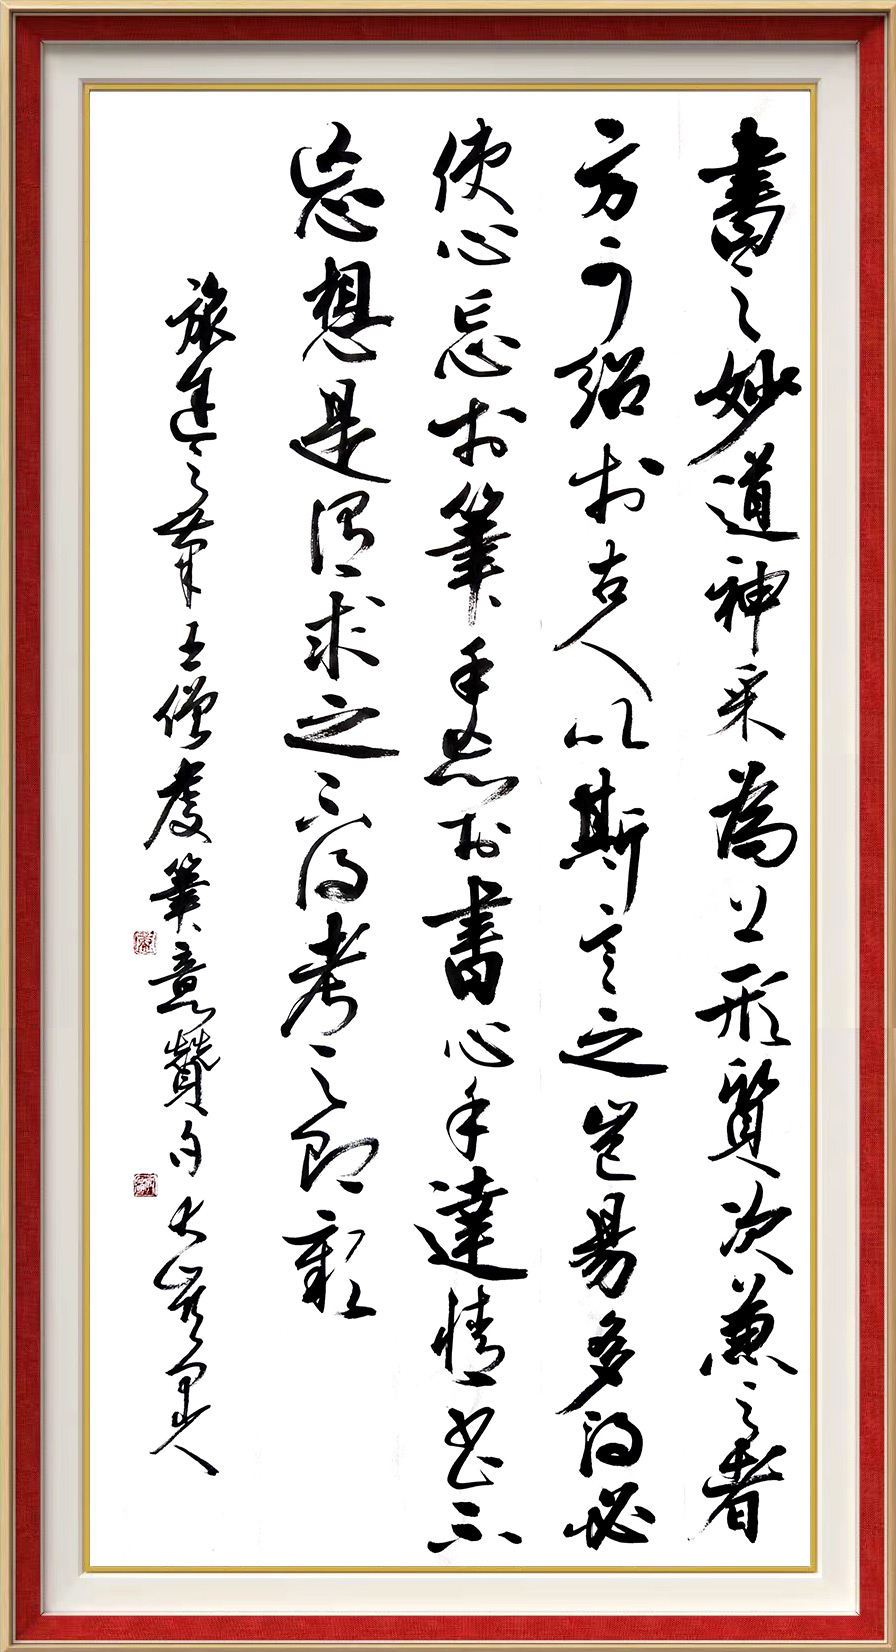 書之妙道神采為上形質次兼之者
方可紹於古人以斯言之豈易多得必
使心忘於筆手忘於書心手達情书不
忘想是謂求之不得考之即彰
王僧虔筆意贊句大人